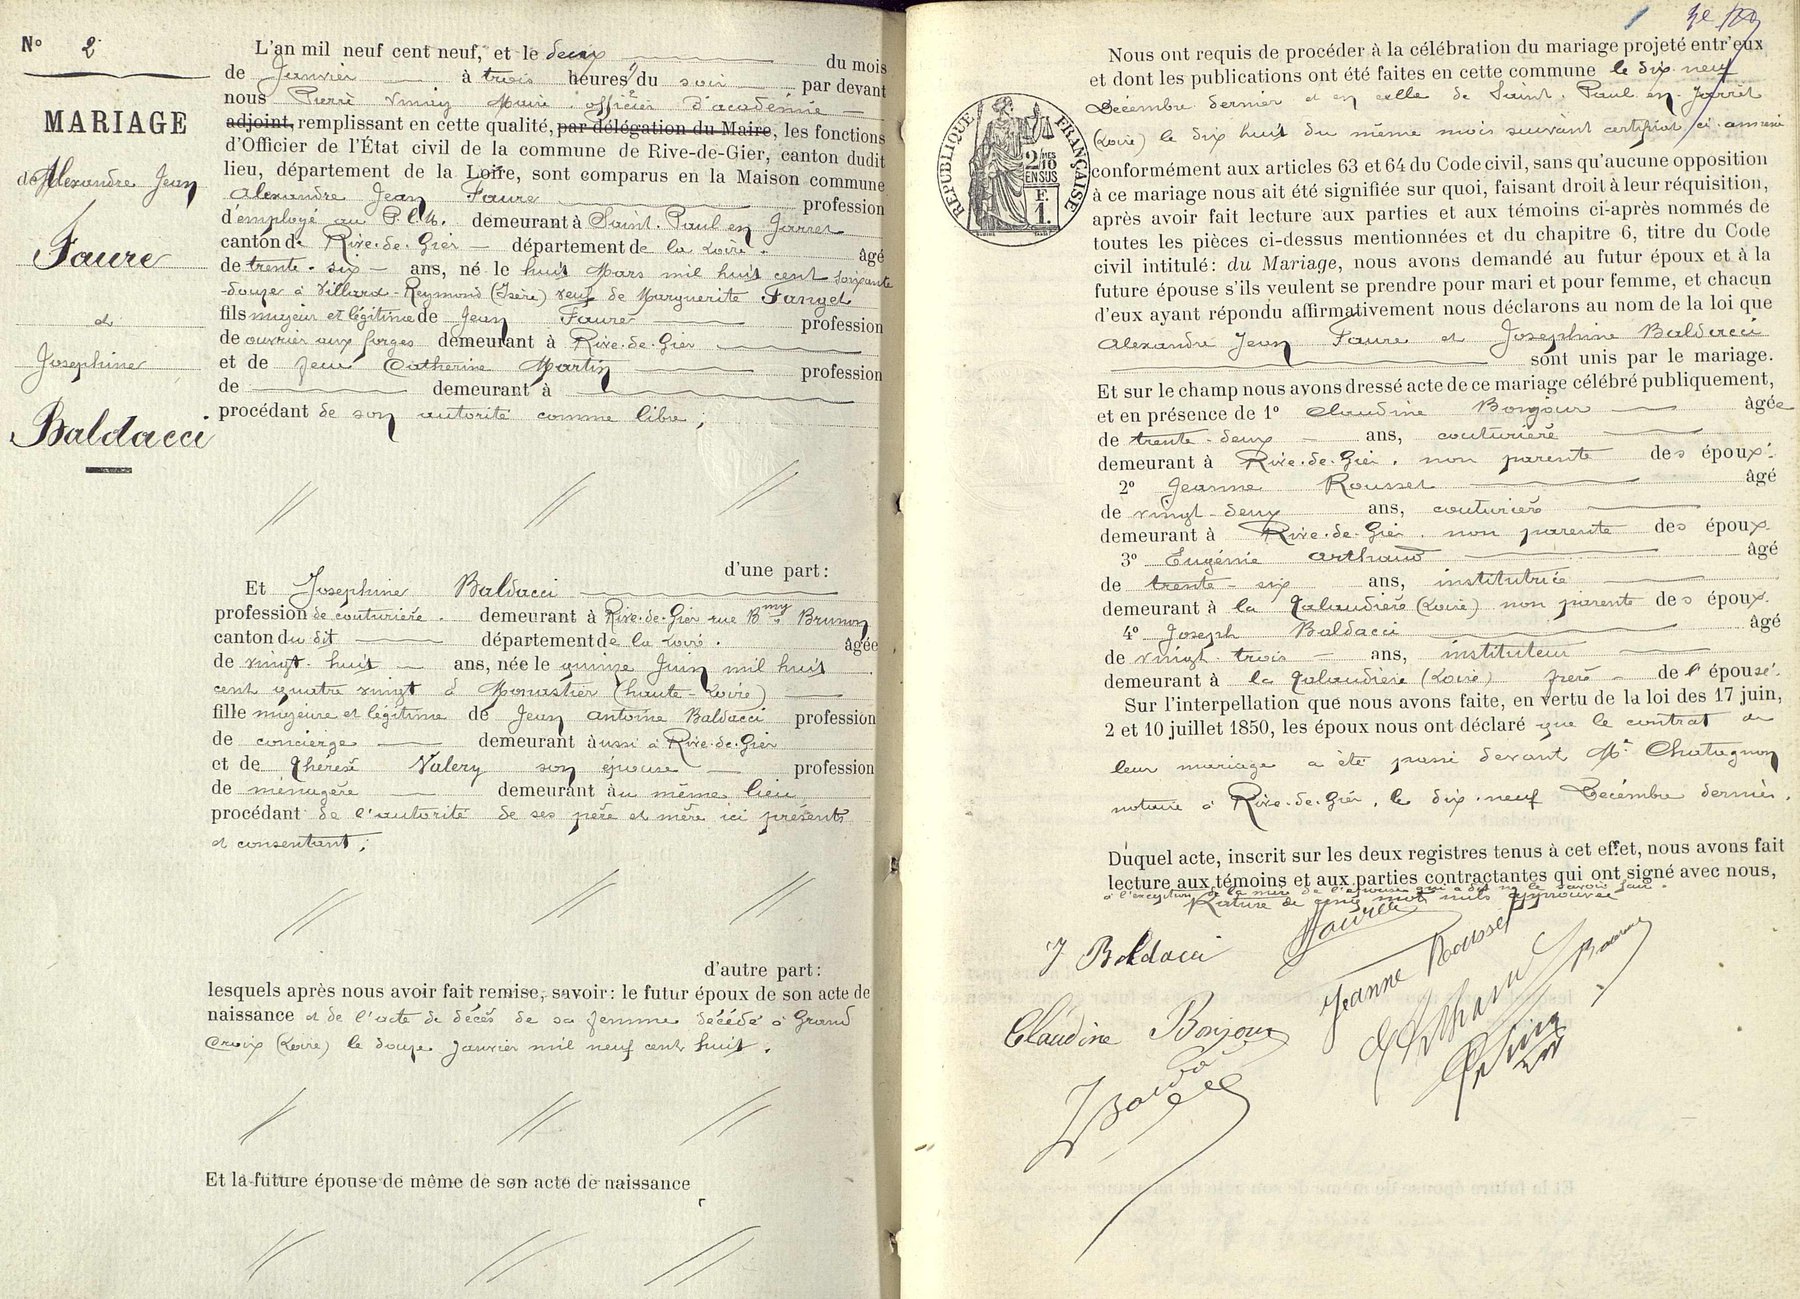 N° 2
MARIAGE
de Alexandre Jean
Faure
et
Joséphine
Baldacci
L'an mil neuf cent neuf, et le deux du mois
de Janvier à trois heures du soir par devant
nous Pierre Maire officier d'académie
adjoint, remplissant en cette qualité, par délégation du Maire, les fonctions
d'Officier de l'État civil de la commune de Rive-de-Gier, canton dudit
lieu, département de la Loire, sont comparus en la Maison commune
Alexandre Jean Faure profession
d'employé au P.L.M. demeurant à Saint-Paul en Jarret
canton de Rive-de-Gier département de la Loire. âgé
de trente-six ans, né le huit Mars mil huit cent soixante
-douze à Villard-Reymond (Isère) veuf de Marguerite Fanget
fils majeur et légitime de Jean Faure profession
de ouvrier aux forges demeurant à Rive-de-Gier
et de feue Catherine Martin profession
de demeurant à
procédant de son autorité comme libre ;
d'une part :
Et Joséphine Baldacci
profession de couturière. demeurant à Rive-de-Gier rue Bmy Brunon
canton du dit département de la Loire. âgée
de vingt-huit ans, née le quinze Juin mil huit
cent quatre vingt à Monastier (haute-Loire)
fille majeure et légitime de Jean Antoine Baldacci profession
de concierge demeurant aussi à Rive-de-Gier
et de Thérèse Valery son épouse profession
de ménagère demeurant au même lieu
procédant de l'autorité de ses père et mère ici présents
et consentant ;
d'autre part :
lesquels après nous avoir fait remise, savoir : le futur époux de son acte de
naissance et de l'acte de décès de sa femme décédé à Grand
Croix (Loire) le douze Janvier mil neuf cent huit.
Et la future épouse de même de son acte de naissance
Nous ont requis de procéder à la célébration du mariage projeté entr'eux
et dont les publications ont été faites en cette commune le dix neuf
Décembre dernier et en celle de Saint-Paul en Jarret
(Loire) le dix huit du même mois suivant certificat ci-annexé
RÉPUBLIQUE FRANÇAISE
2/10MES
EN SUS
F.
1.
conformément aux articles 63 et 64 du Code civil, sans qu'aucune opposition
à ce mariage nous ait été signifiée sur quoi, faisant droit à leur réquisition,
après avoir fait lecture aux parties et aux témoins ci-après nommés de
toutes les pièces ci-dessus mentionnées et du chapitre 6, titre du Code
civil intitulé : du Mariage, nous avons demandé au futur époux et à la
future épouse s'ils veulent se prendre pour mari et pour femme, et chacun
d'eux ayant répondu affirmativement nous déclarons au nom de la loi que
Alexandre Jean Faure et Joséphine Baldacci
sont unis par le mariage.
Et sur le champ nous avons dressé acte de ce mariage célébré publiquement,
et en présence de 1° Claudine Bonjour âgée
de trente-deux ans, couturière
demeurant à Rive-de-Gier. non parente des époux.
2° Jeanne Rousset âgé
de vingt-deux ans, couturière
demeurant à Rive-de-Gier. non parente des époux.
3° Eugénie Arthaud âgé
de trente-six ans, institutrice
demeurant à la Valaudière (Loire) non parente des époux.
4° Joseph Baldacci âgé
de vingt trois ans, instituteur
demeurant à la Valaudière (Loire) frère de l'épouse.
Sur l'interpellation que nous avons faite, en vertu de la loi des 17 juin,
2 et 10 juillet 1850, les époux nous ont déclaré que le contrat de
leur mariage a été passé devant Me Chatagnon
notaire à Rive-de-Gier, le dix-neuf Décembre dernier.
Duquel acte, inscrit sur les deux registres tenus à cet effet, nous avons fait
lecture aux témoins et aux parties contractantes qui ont signé avec nous,
à l'exception de la mère de l'épouse qui a dit ne le savoir faire.
Rature de cinq mots nuls approuvée
J Baldacci
Faure
Jeanne Rousset
Claudine Bonjour
E Arthaud
Baldacci